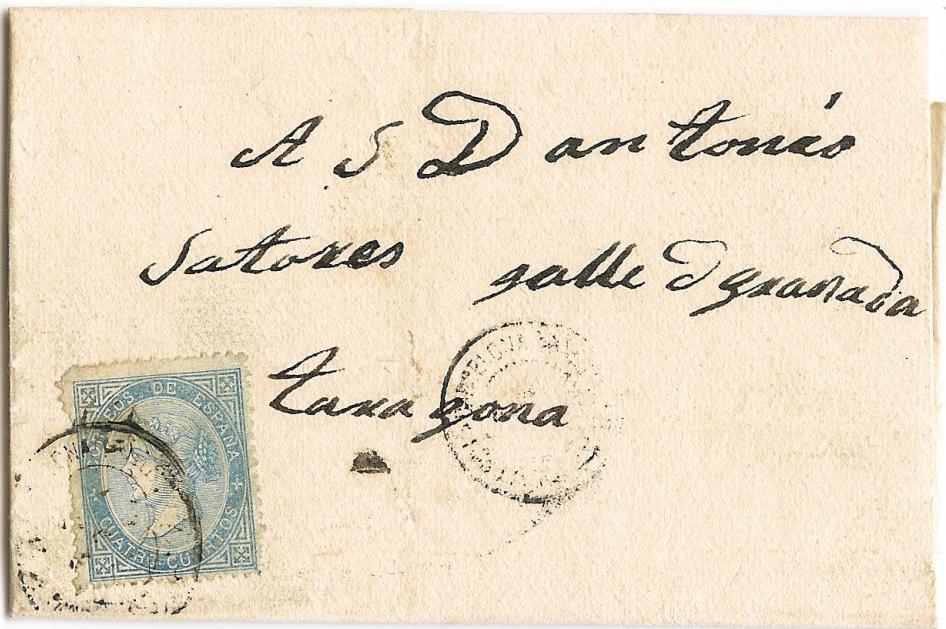 A S D antonio
Satorres galle d granada
taragona
CORREOS DE ESPAÑA
CUATRO CUARTOS